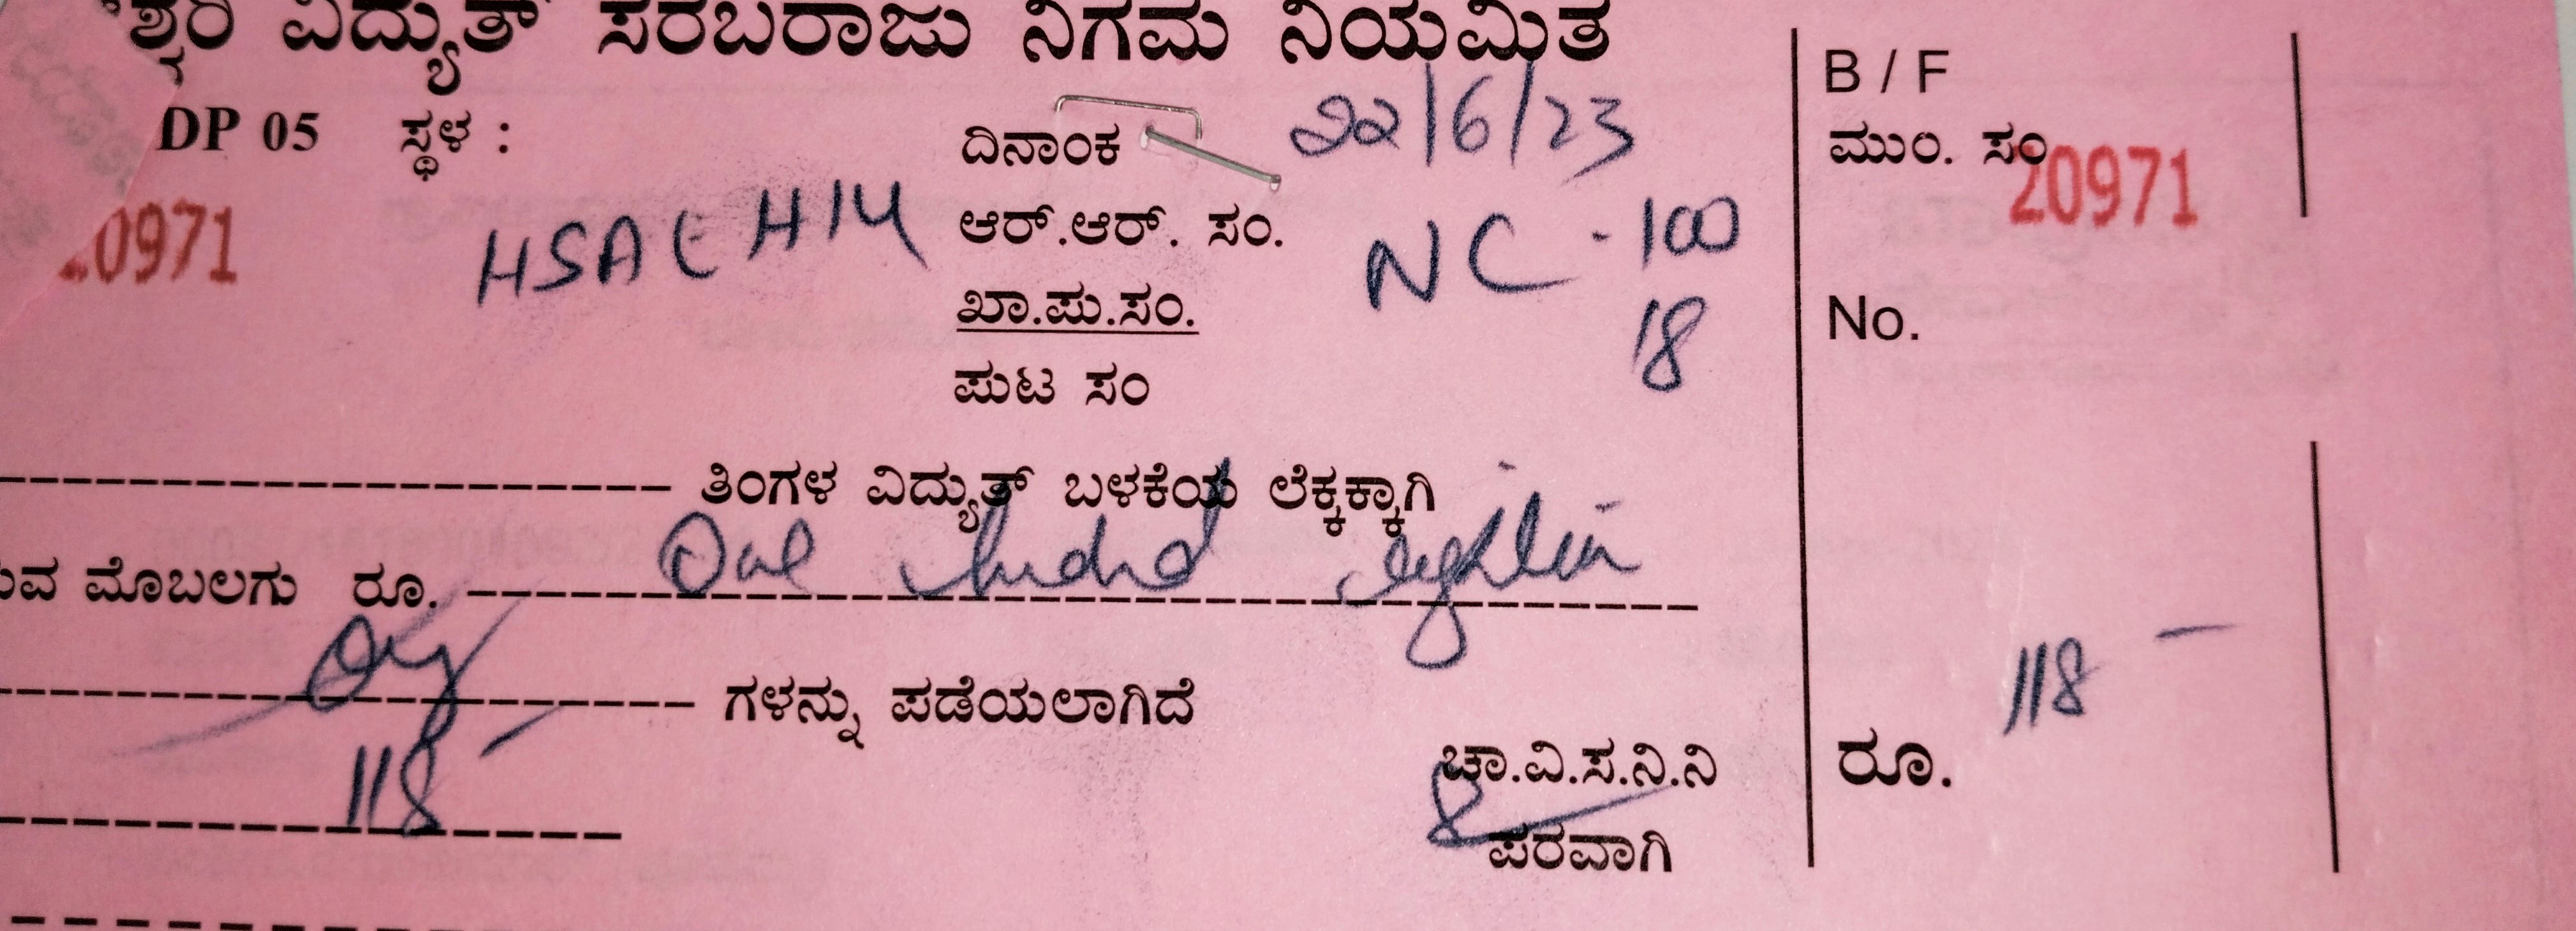 ವಿದ್ಯುತ್ ಸರಬರಾಜು ನಿಗಮ ನಿಯಮಿತ
B / F
DP 05 ಸ್ಥಳ : ದಿನಾಂಕ 22/6/23 ಮುಂ. ಸಂ 20971
0971 ಆರ್.ಆರ್. ಸಂ. NC - 100
ಖಾ.ಪು.ಸಂ. 18 No.
ಪುಟ ಸಂ
ತಿಂಗಳ ವಿದ್ಯುತ್ ಬಳಕೆಯ ಲೆಕ್ಕಕ್ಕಾಗಿ
ಮೊಬಲಗು ರೂ. One hundred eighteen
only ಗಳನ್ನು ಪಡೆಯಲಾಗಿದೆ 118 -
118 - ಚಾ.ವಿ.ಸ.ನಿ.ನಿ ರೂ.
ಪರವಾಗಿ